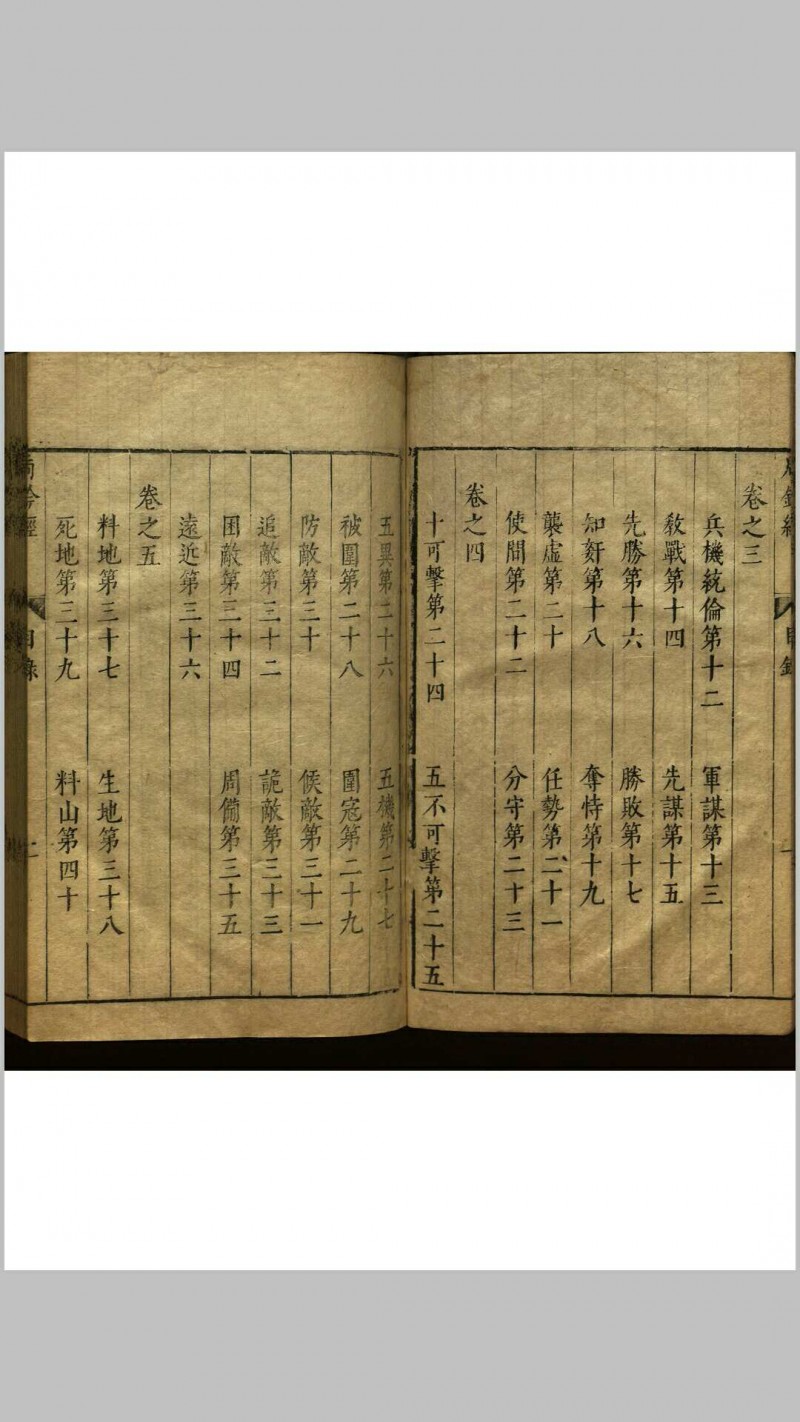 卷之三
兵機統倫第十二　軍謀第十三
敎戰第十四　先謀第十五
先勝第十六　勝敗第十七
知姧第十八　奪恃第十九
襲虛第二十　任勢第二十一
使間第二十二　分守第二十三
卷之四
十可擊第二十四　五不可擊第二十五
五異第二十六　五機第二十七
被圍第二十八　圍寇第二十九
防敵第三十　候敵第三十一
追敵第三十二　詭敵第三十三
困敵第三十四　周備第三十五
遠近第三十六
卷之五
料地第三十七　生地第三十八
死地第三十九　料山第四十
目錄